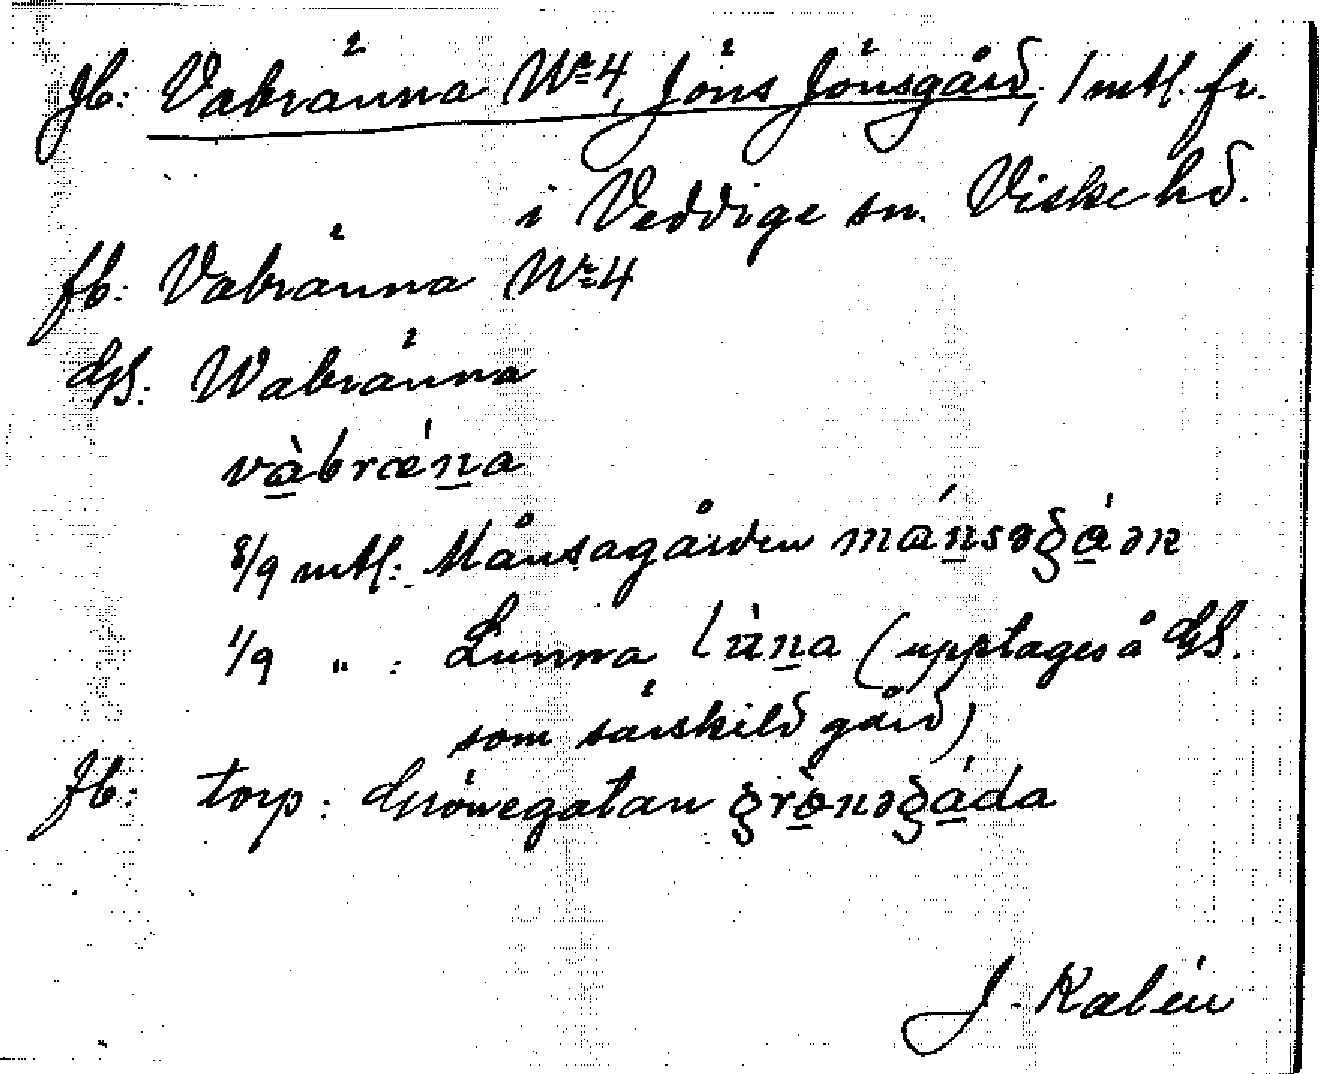 Jb: Vabränna Nr 4, Jöns Jönsgård, 1 mtl. fr.
i Veddige sn. Viske hd.
fb: Vabränna Nr 4
GS. Wabränna
vàbrǽna
8/9 mtl: Månsagården mánsəgáən
1/9 „ : Lunna lùna (upptages å GS.
som särskild gård)
Jb: torp: Grönegatan grònəgáda
J. Kalén